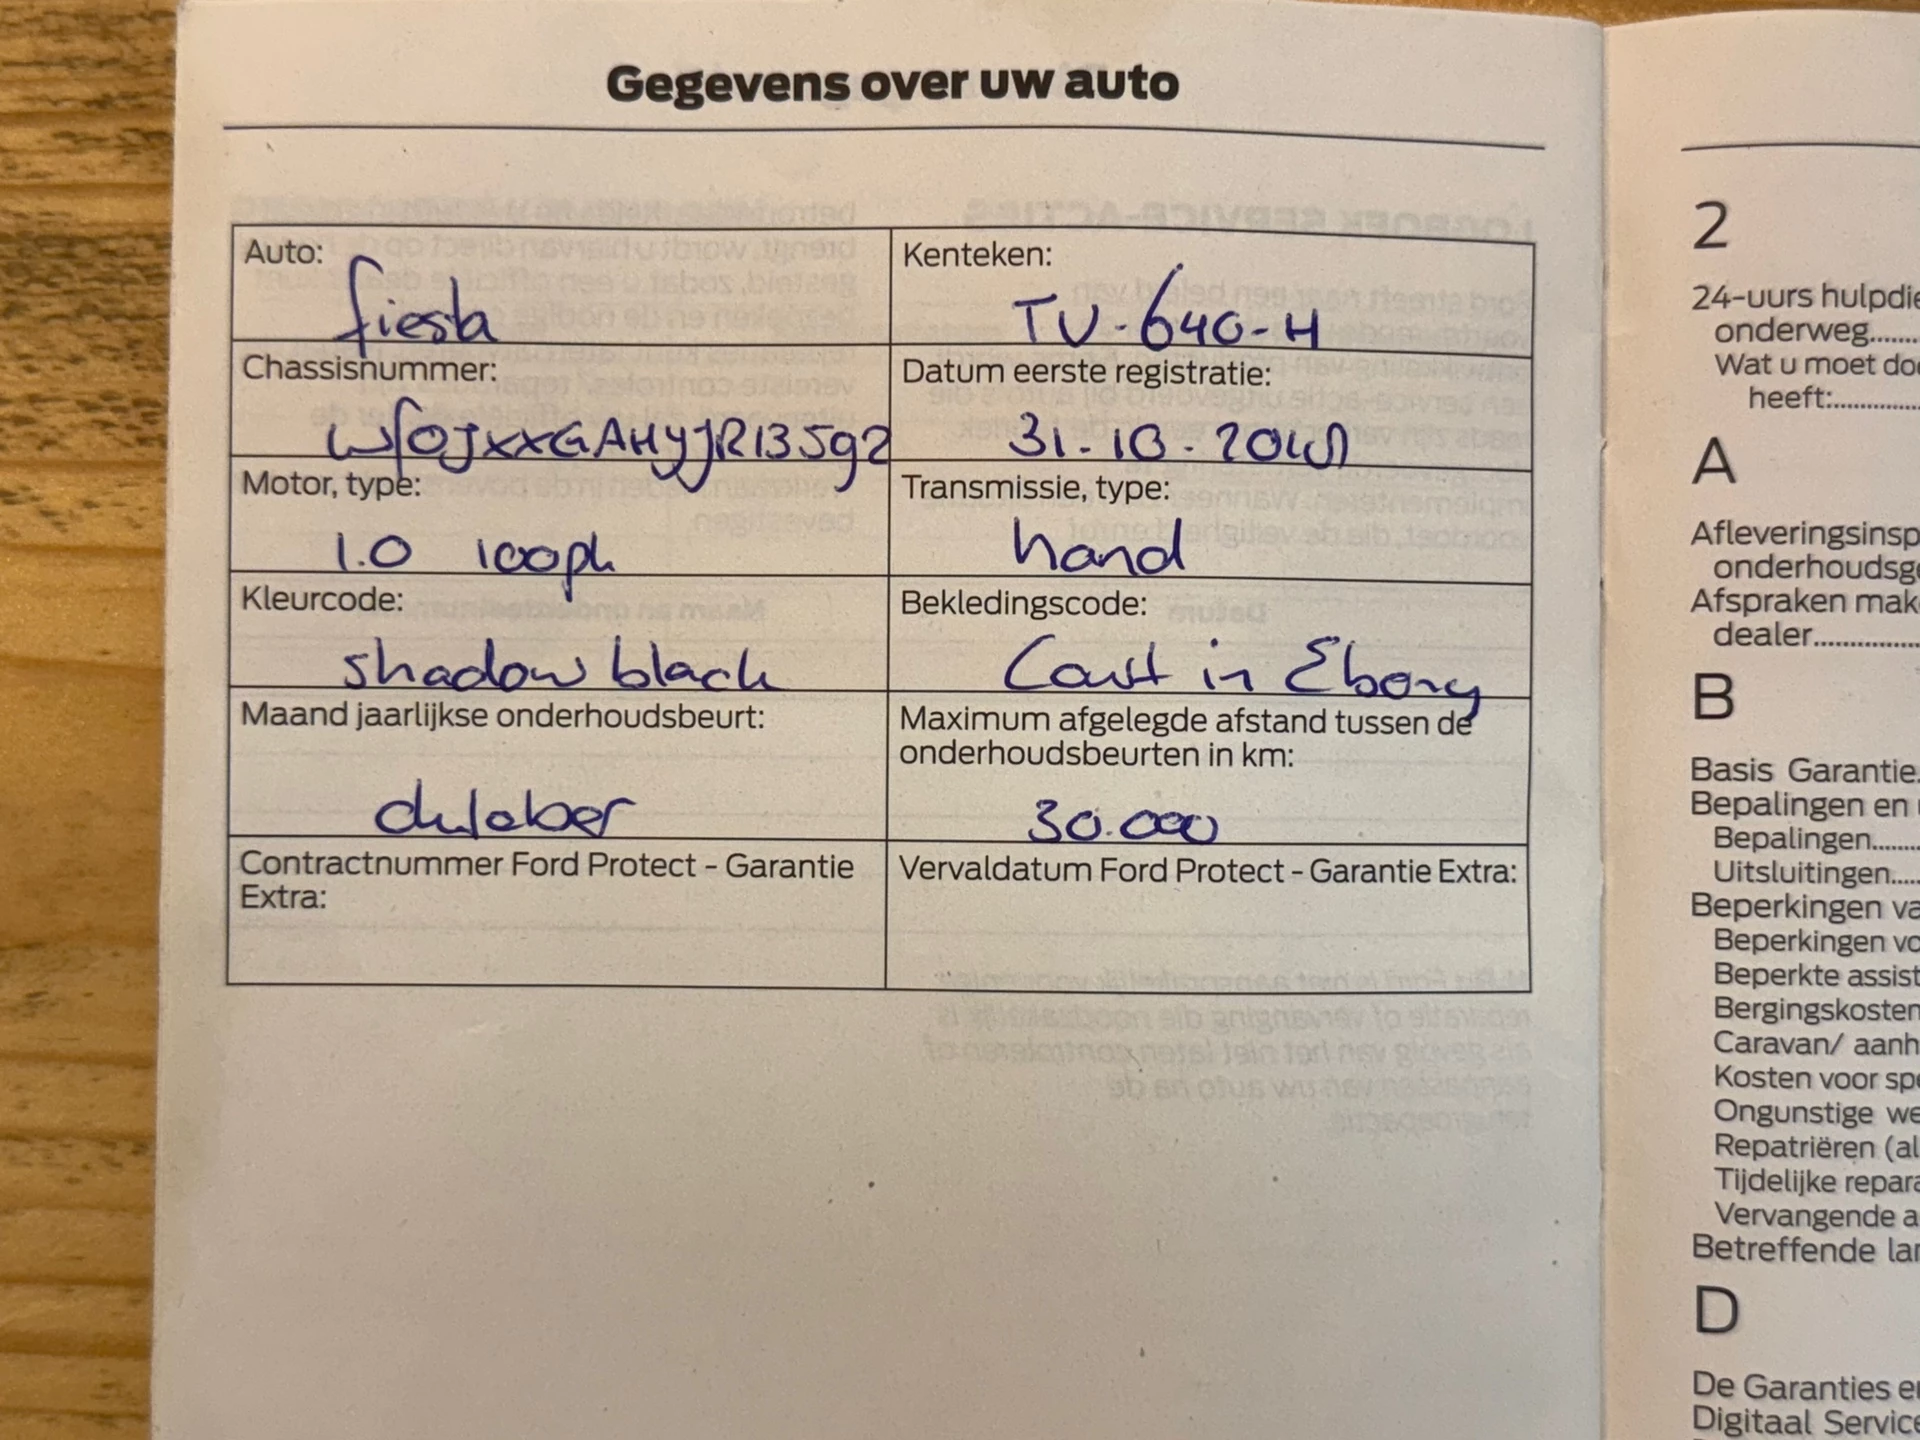 Gegevens over uw auto
Auto:
fiesta
Kenteken:
TV-640-H
Chassisnummer:
WF0JXXGAHJJR13592
Datum eerste registratie:
31-10-
Motor, type:
1.0 100pk
Transmissie, type:
hand
Kleurcode:
shadow black
Bekledingscode:
in Ebony
Maand jaarlijkse onderhoudsbeurt:
Maximum afgelegde afstand tussen de
onderhoudsbeurten in km:
30.000
Contractnummer Ford Protect - Garantie
Extra:
Vervaldatum Ford Protect - Garantie Extra:
2
24-uurs hulpdie
onderweg.......
Wat u moet do
heeft:..............
A
Afleveringsinsp
onderhoudsge
Afspraken mak
dealer................
B
Basis Garantie.
Bepalingen en
Bepalingen........
Uitsluitingen.....
Beperkingen va
Beperkingen vo
Beperkte assist
Bergingskosten
Caravan/ aanh
Kosten voor spe
Ongunstige we
Repatriëren (al
Tijdelijke repara
Vervangende a
Betreffende lan
D
De Garanties en
Digitaal Service